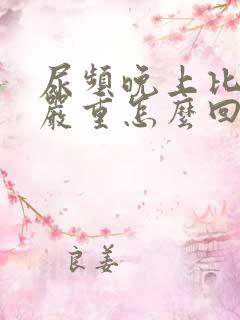 尿頻晚上比
嚴重怎麼回
良姜